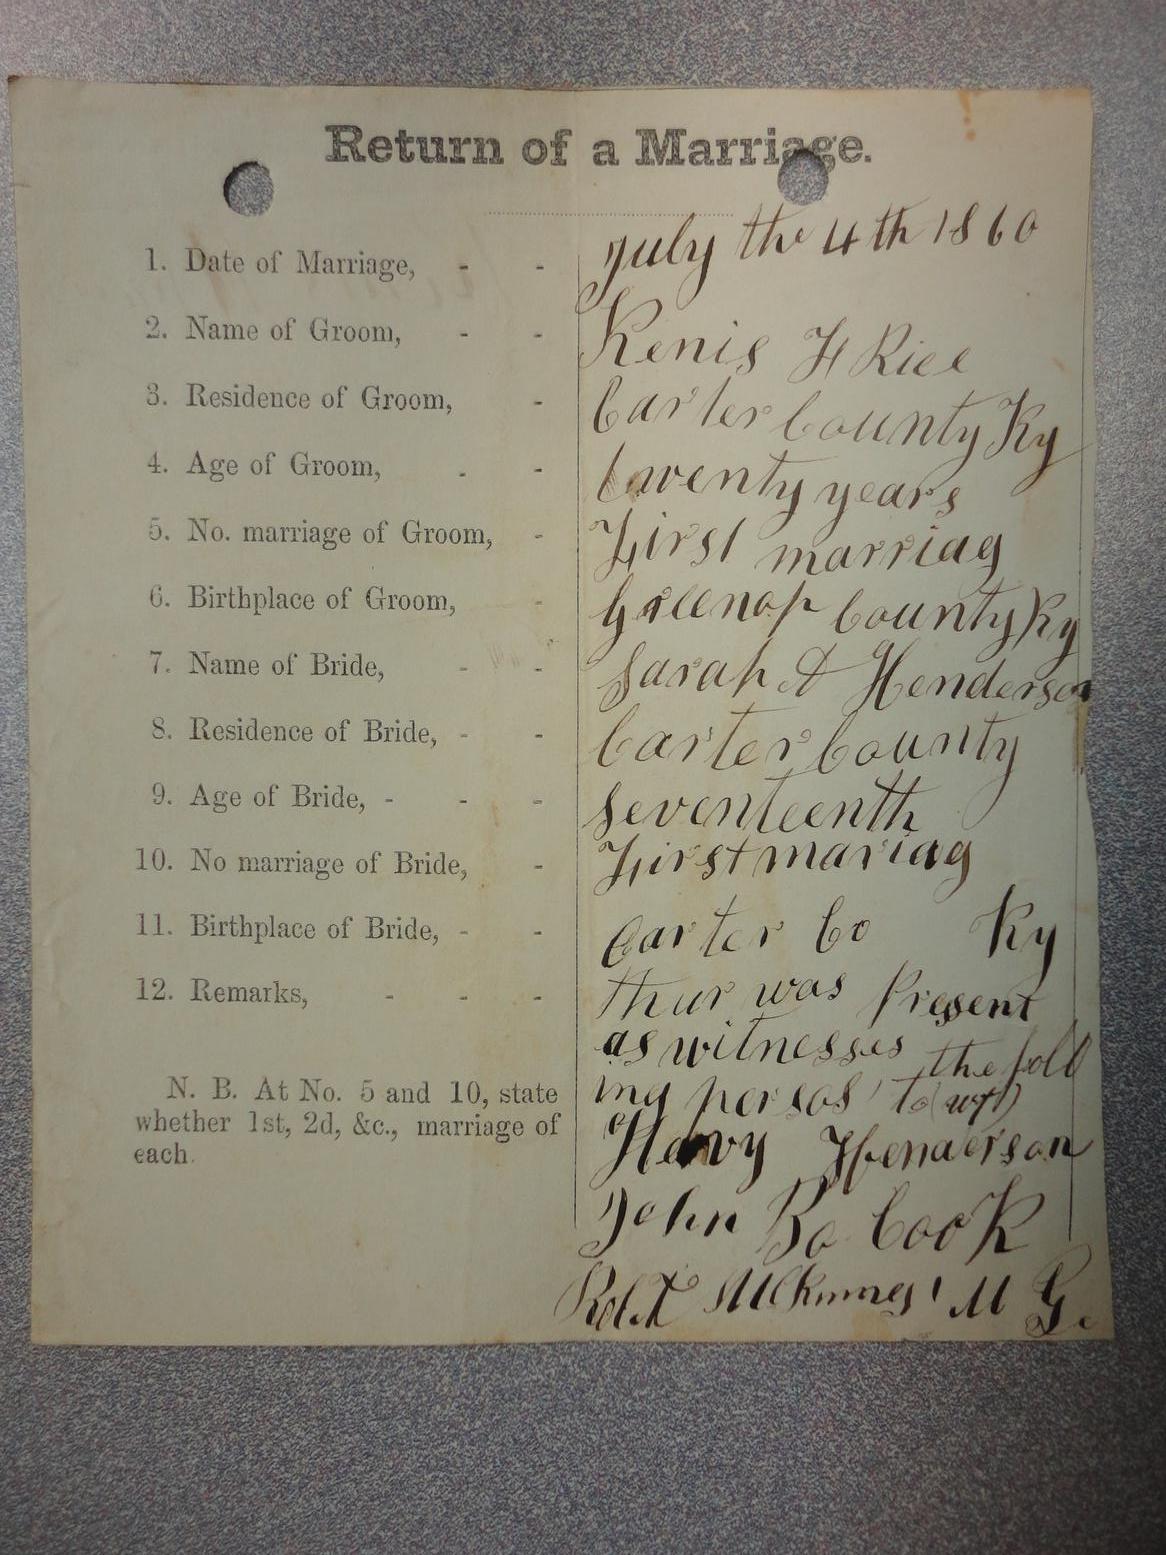 Return of a Marriage.
1. Date of Marriage, - - July the 4th 1860
2. Name of Groom, - - Kenis F Rice
3. Residence of Groom, - Carter County Ky
4. Age of Groom, - - twenty years
5. No. marriage of Groom, - First marriag
6. Birthplace of Groom, - Greenop County Ky
7. Name of Bride, - - Sarah A Henderson
8. Residence of Bride, - - Carter County
9. Age of Bride, - - - seventeenth
10. No marriage of Bride, - First mariag
11. Birthplace of Bride, - - Carter Co Ky
12. Remarks, - - - thur was Present
as witnesses the foll
ing persos to (wit)
Henderson
John Cook
Robt McKinney M G.
N. B. At No. 5 and 10, state
whether 1st, 2d, &c., marriage of
each.